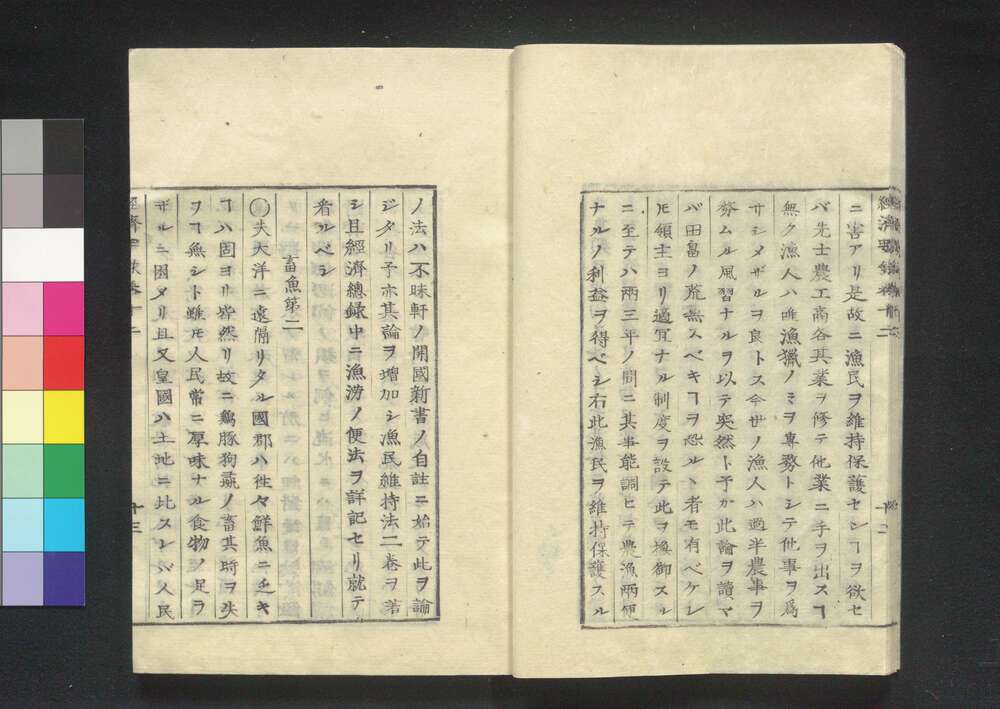 ニ害アリ是故ニ漁民ヲ維持保護センヿヲ欲セ
バ先士農工商各其業ヲ修テ他業ニ手ヲ出スヿ
無ク漁人ハ唯漁獵ノミヲ專務トシテ他事ヲ為
サシメザルヲ良トス今世ノ漁人ハ過半農事ヲ
務ムル風習ナルヲ以テ突然ト予カ此論ヲ讀マ
バ田畠ノ荒無スベキヿヲ恐ルヽ者モ有ベケレ
𪜈領主ヨリ適冝ナル制度ヲ設テ此ヲ換御スル
ニ至テハ両三年ノ間ニ其事能調ヒテ農漁両便
ナルノ利益ヲ得ベシ右此漁民ヲ維持保護スル
ノ法ハ不昧軒ノ開國新書ノ自註ニ始テ此ヲ論
ジタリ予亦其論ヲ増加シ漁民維持法二巻ヲ著
シ且經濟總録中ニ漁澇ノ便法ヲ詳記セリ就テ
看ルベシ
畜魚第二
○夫大洋ニ遠隔リタル國郡ハ往々鮮魚ニ乏キ
ヿハ固ヨリ皆然リ故ニ鷄豚狗彘ノ畜其時ヲ失
ヲヿ無シト雖𪜈人民常ニ厚味ナル食物ノ足ラ
ザルニ困メリ且又皇國ハ土地ニ比スレバ人民
十三